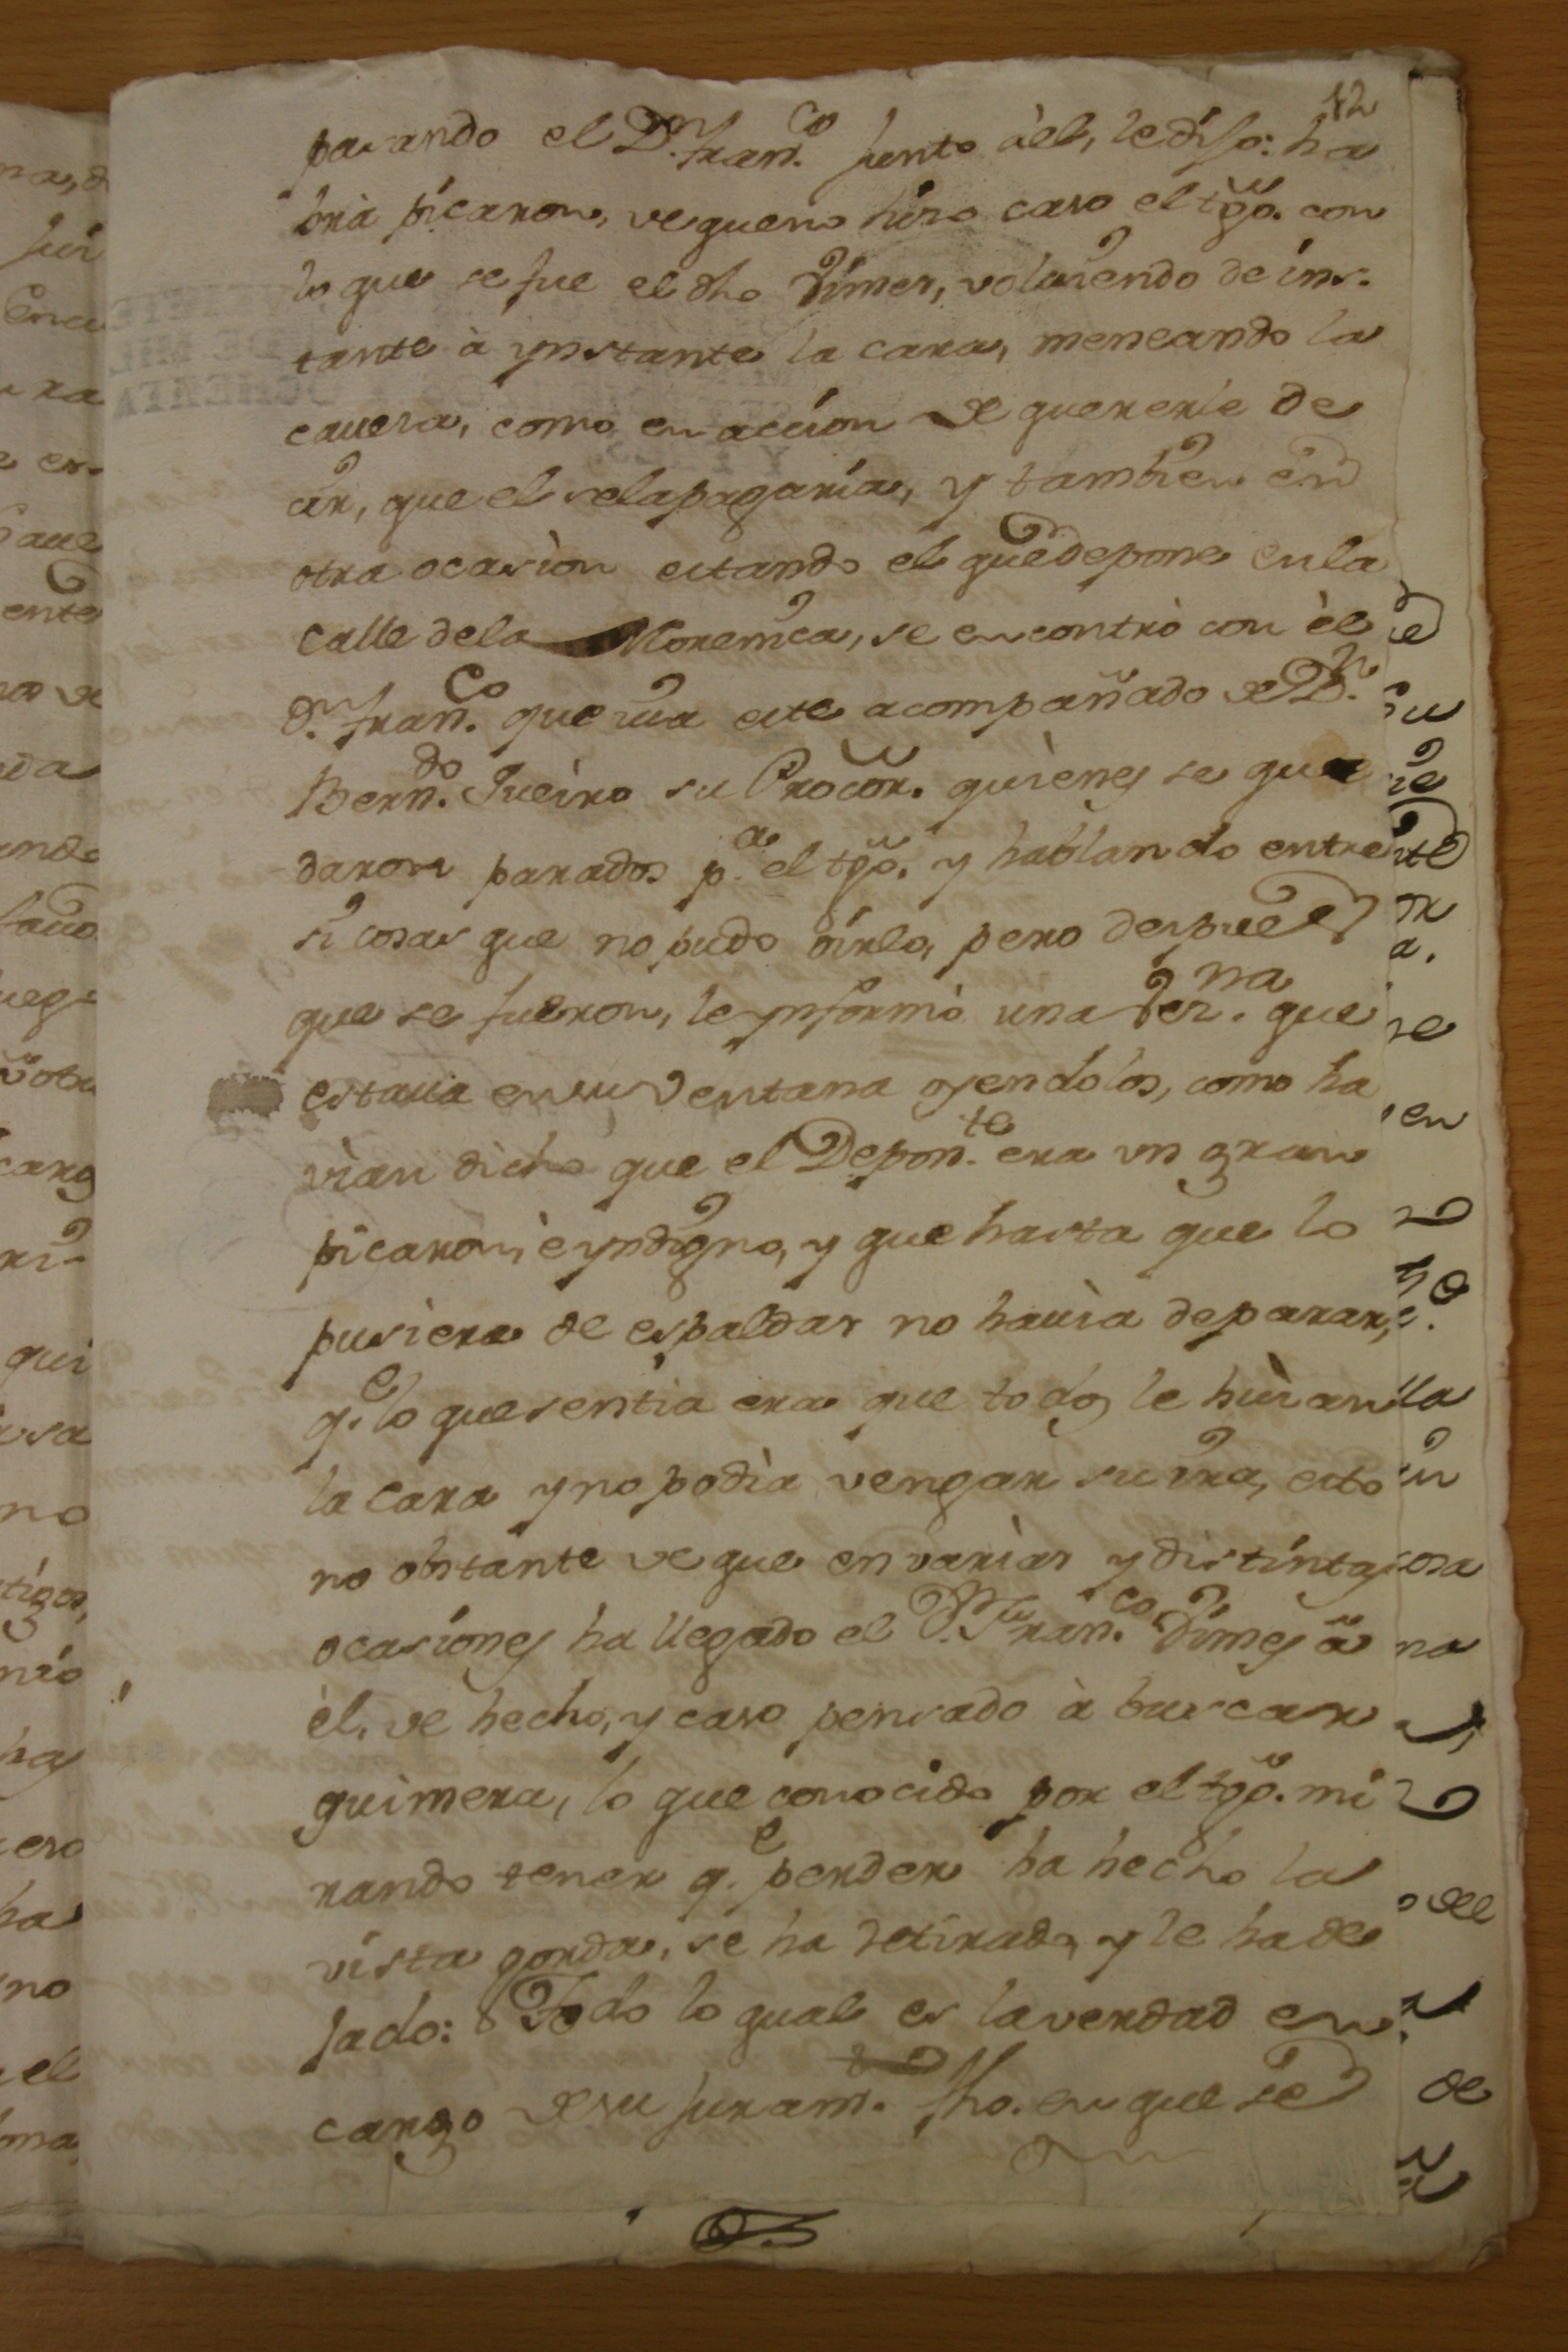 12
pasando el Dn. Franco. junto à èl, le dijo: ha
brià picaron, de que no hizo caso el tgo. con
lo que se fue el dho Dimes, volviendo de ins-
tante à ynstante la cara, meneando la
caveza, como en accion de quererle de
cir, que el se la pagaria, y tambien en
otra ocasiòn estando el que depone en la
calle de la Morenica, se encontrò con èl
dn. Franco. que iva este acompañado de Dn.
Berndo. Jueiro su Procor. quiènes se que
daron parados pa. el tgo. y hablando entre
si cosas que no pudo oirlo, pero despues
que se fueron, le ynformò una Perna. que
estava en su Ventana oyendolos, como ha
vian dicho que el Deponte. era un gran
picaron, è yndigno, y que hasta que lo
pusiera de espaldas no havia de parar,
qe. lo que sentia era que todos le huìan
la cara y no podìa vengar su ira, esto
no obstante de que en varias y distintas
ocasiones ha llegado el Dn. Franco. Dimes à
èl, de hecho, y caso pensado à buscar
quimera, lo que conocido por el tgo. mi
rando tener qe. perder ha hecho la
vista gorda, se ha retirado, y le ha de
jado: Todo lo qual es la verdad en
cargo de su juramto. fho. en que se